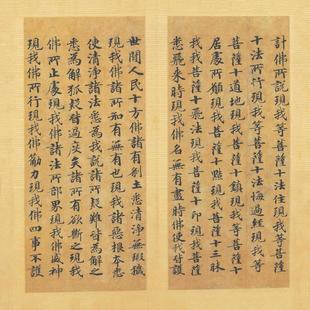 計佛所說現我等菩薩十法住現我等菩薩
十法所行現我等菩薩十法悔過經現我等
菩薩十道地現我菩薩十鎮現我等菩薩十
居處所願現我菩薩十黠現我菩薩十三昧
現我菩薩十飛法現我菩薩十印現我
悉飛來時現我佛名無有盡時佛使我護
世間人民十方佛諸有剎土悉清淨無瑕穢
現我佛諸所知有無有也現我諸慧根本悉
使清淨諸法悉為我說諸所疑難皆為解之
悉為解狐疑皆過矣諸所有欲斷之現我
佛所止處現我佛諸法所部界現我佛威神
現我佛所行現我佛力現我佛四事不護